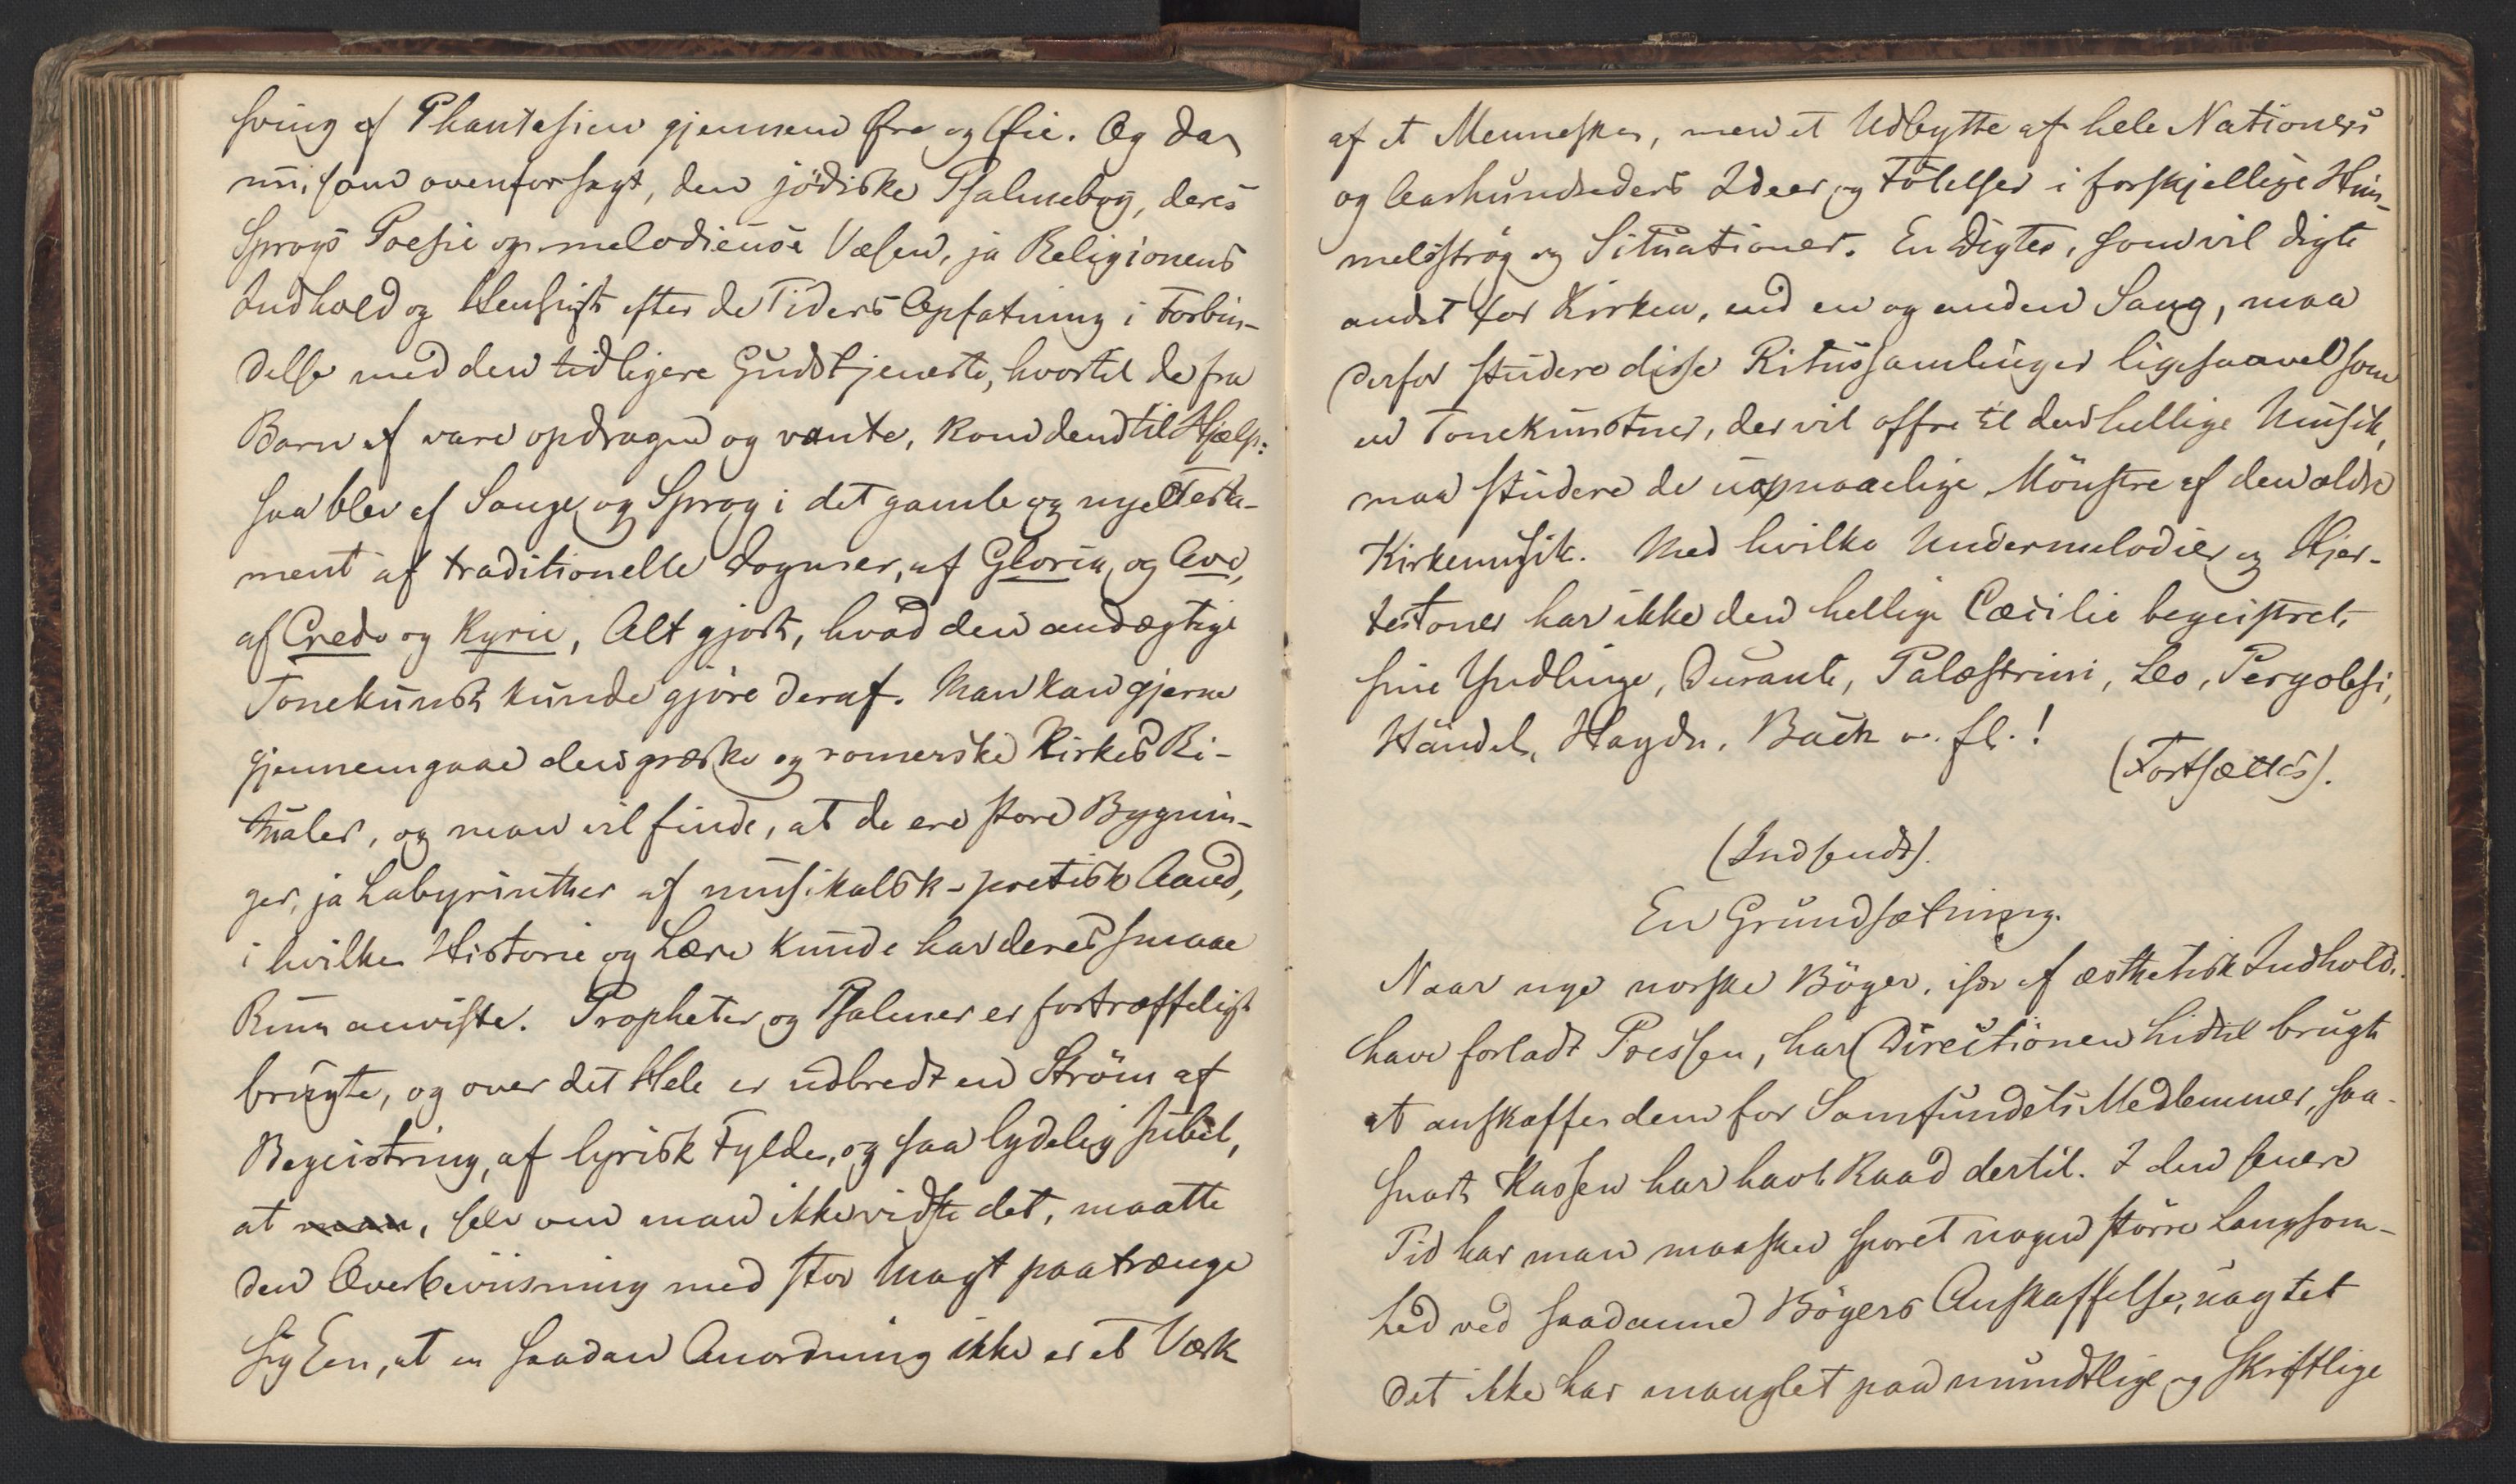 sving af Phantasien gjennem Øre og Øie. Og da
nu, som ovenforsagt, den jödiske Psalmebog, deres
Sprogs Poesie og melodieuse Væsen, ja Religionens
Indhold og Hensigt efter de Tiders Opfatning i Forbin-
delse med den tidligere Gudstjeneste, hvortil de fra
Barn af vare opdragne og vante, kom dem til Hjælp:
saa blev af Sange og Sprog i det gamle og nye Testa-
ment af traditionelle Dogmer, af Gloria og Ave,
af Credo og Kyrie, Alt gjort, hvad den andægtige
Tonekunst kunde gjöre deraf. Man kan gjerne
gjennemgaae den græske og romerske Kirkes Ri-
tualer, og man vil finde, at de ere store Bygnin-
ger, ja Labyrinther af musikalsk-poetisk Aand,
i hvilke Historie og Lære kunde har deres smaae
Rum anviste. Propheter og Psalmer er fortræffeligt
brugte, og over det Hele er udbredt en Ström af
Begeistring, af lyrisk Fylde, og saa lydelig Jubel,
at man, selv om man ikke vidste det, maatte
den Overbeviisning med stor Magt paatrænge
sig Een, at en saadan Anordning ikke er et Værk
af et Menneske, men et Udbytte af hele Nationers
og Aarhundreders Ideer og Fölelser i forskjellige Him-
melströg og Situationer. En Digter, som vil digte
andet for Kirken, end en og anden Sang, maa
derfor studere disse Ritussamlinger ligesaavel som
en Tonekunstner, der vil offre til den hellige Musik,
maa studere de uopnaaelige Mönstre af den ældre
Kirkemusik. Med hvilke Undermelodier og Hjer-
tetoner har ikke den hellige Cæcilie begeistret
sine Yndlinge, Durante, Palæstrini, Leo, Pergolesi,
Händel, Haydn, Bach o. fl.!
(Fortsættes).
(Indsendt).
En Grundsætning.
Naar nye norske Böger, især af æsthetisk Indhold,
have forladt Pressen, har Directionen hidtil brugt
at anskaffe dem for Samfundets Medlemmer, saa-
snart Kassen har havt Raad dertil. I den senere
Tid har man maaskee sporet nogen större Langsom-
hed ved saadanne Bögers Anskaffelse, uagtet
det ikke har manglet paa mundtlige og skriftlige